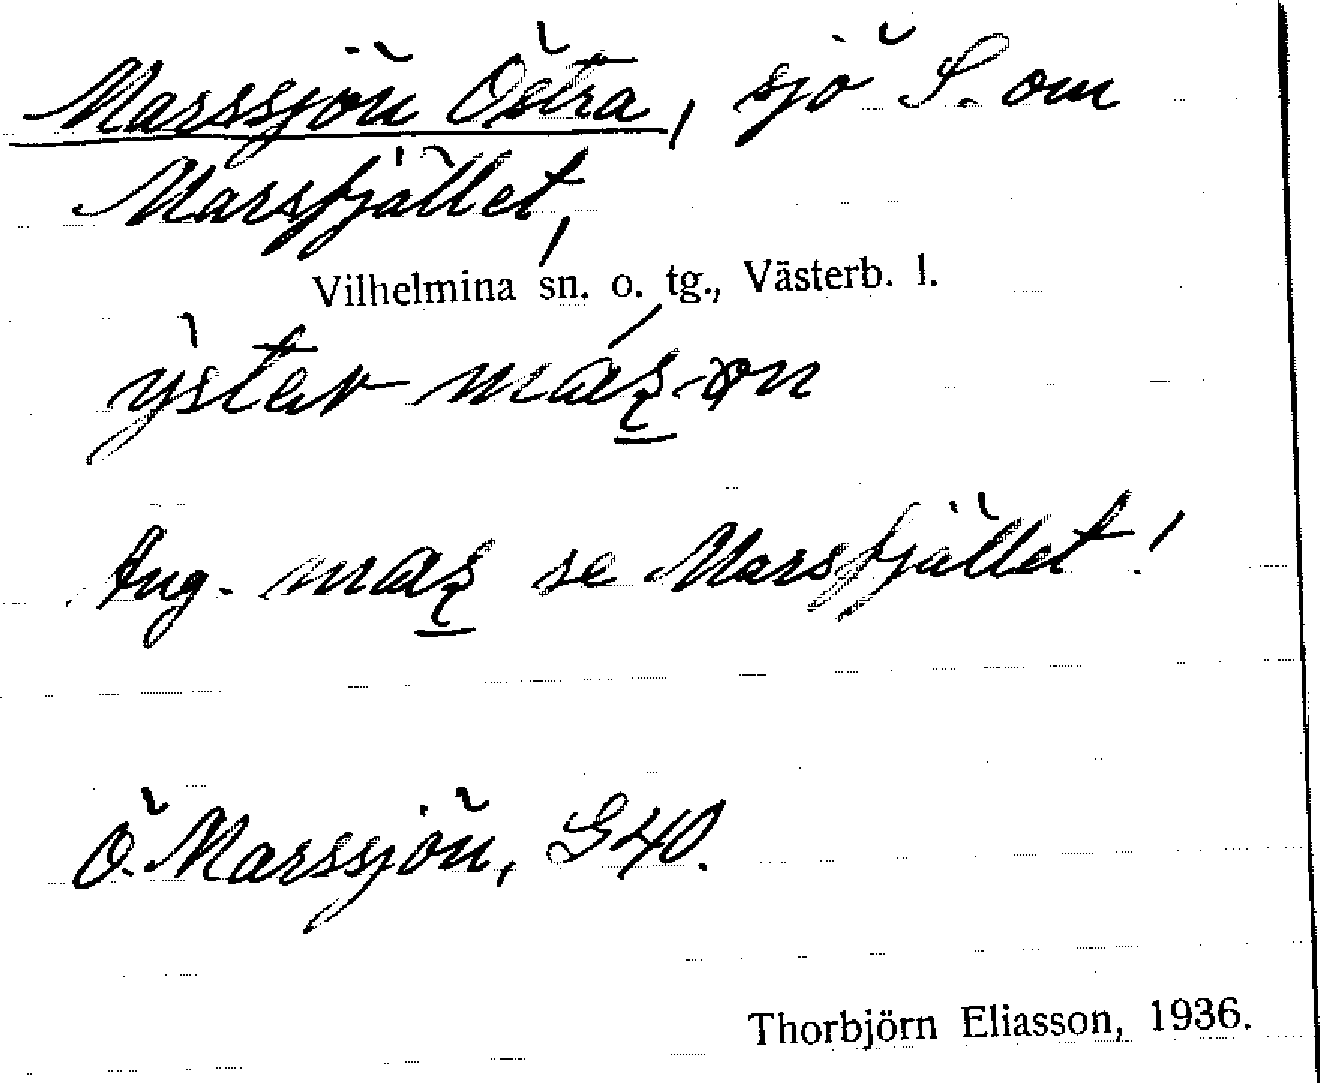 Marssjön Östra, sjö S. om
Marsfjället,
Vilhelmina sn. o. tg., Västerb. l.
ýstar
Ang. se Marsfjället!
Ö. Marssjön, G40.
Thorbjörn Eliasson, 1936.